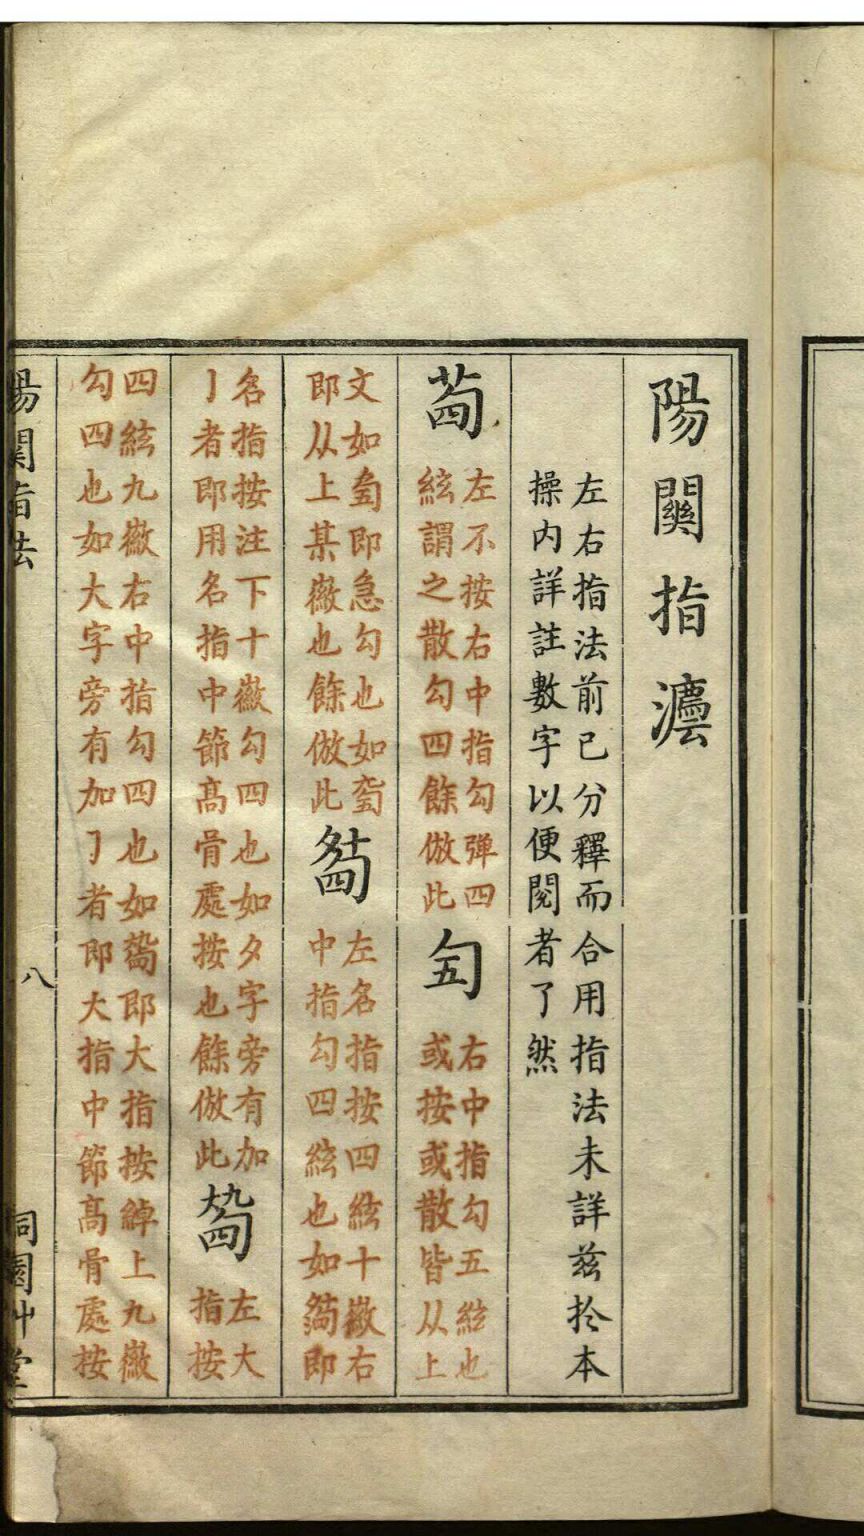 陽關指灋
左右指法前已分釋而合用指法未詳兹扵本
操内詳註數字以便閱者了然
左不按右中指勾弹四
絃謂之散勾四餘倣此
右中指勾五絃也
或按或散皆从上
文如即急勾也如
即从上某徽也餘倣此
左名指按四絃十徽右
中指勾四絃也如即
名指按注下十徽勾四也如夕字旁有加
亅者即用名指中節髙骨處按也餘倣此
左大
指按
四絃九徽右中指勾四也如即大指按綽上九徽
勾四也如大字旁有加亅者即大指中節髙骨處按
陽關指法
八
園艸堂